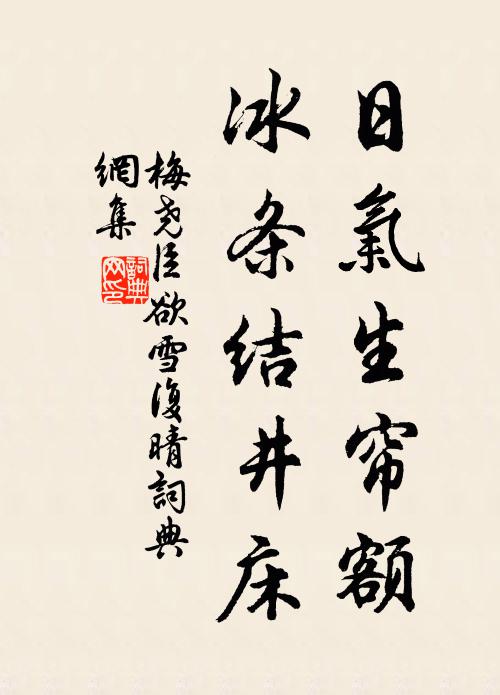 日氣生帘額
冰条结井床
梅尧臣欲雪復晴詞典
網集
詞典
网印